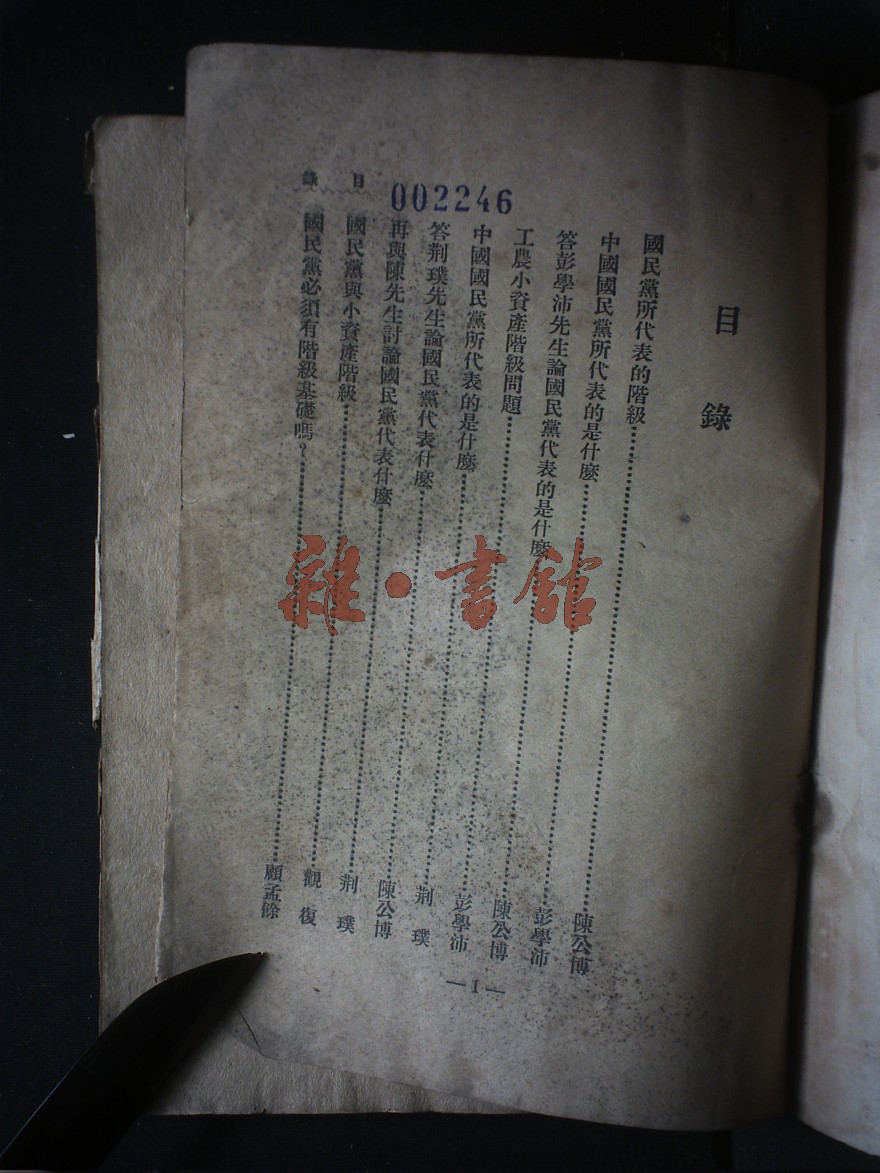 目錄
國民黨所代表的階級……陳公博
中國國民黨所代表的是什麽……彭學沛
答彭學沛先生論國民黨代表的是什麽……陳公博
工農小資產階級問題……彭學沛
中國國民黨所代表的是什麽……荆璞
答荆璞先生論國民黨代表什麽……陳公博
再與陳先生討論國民黨代表什麽……荆璞
國民黨與小資產階級……觀復
國民黨必須有階級基礎嗎？……顧孟餘
目錄
002246
—1—
雜·書館